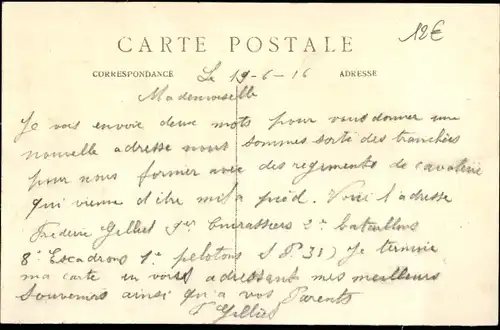 12€
CARTE POSTALE
CORRESPONDANCE Le 19-6-16 ADRESSE
Mademoiselle
Je vous envoie deux mots pour vous donner une
nouvelle adresse nous sommes sorti des tranchées
pour nous former avec des regiments de cavalerie
qui vienne d'être mis a pied. Voici l'adresse
Frederic Gilliet 9er Cuirassiers 2e bataillons
8e Escadrons 1e pelotons S P. 31) Je termine
ma carte en vous adressant mes meilleurs
Souvenirs ainsi qu'a vos Parents
F Gilliet